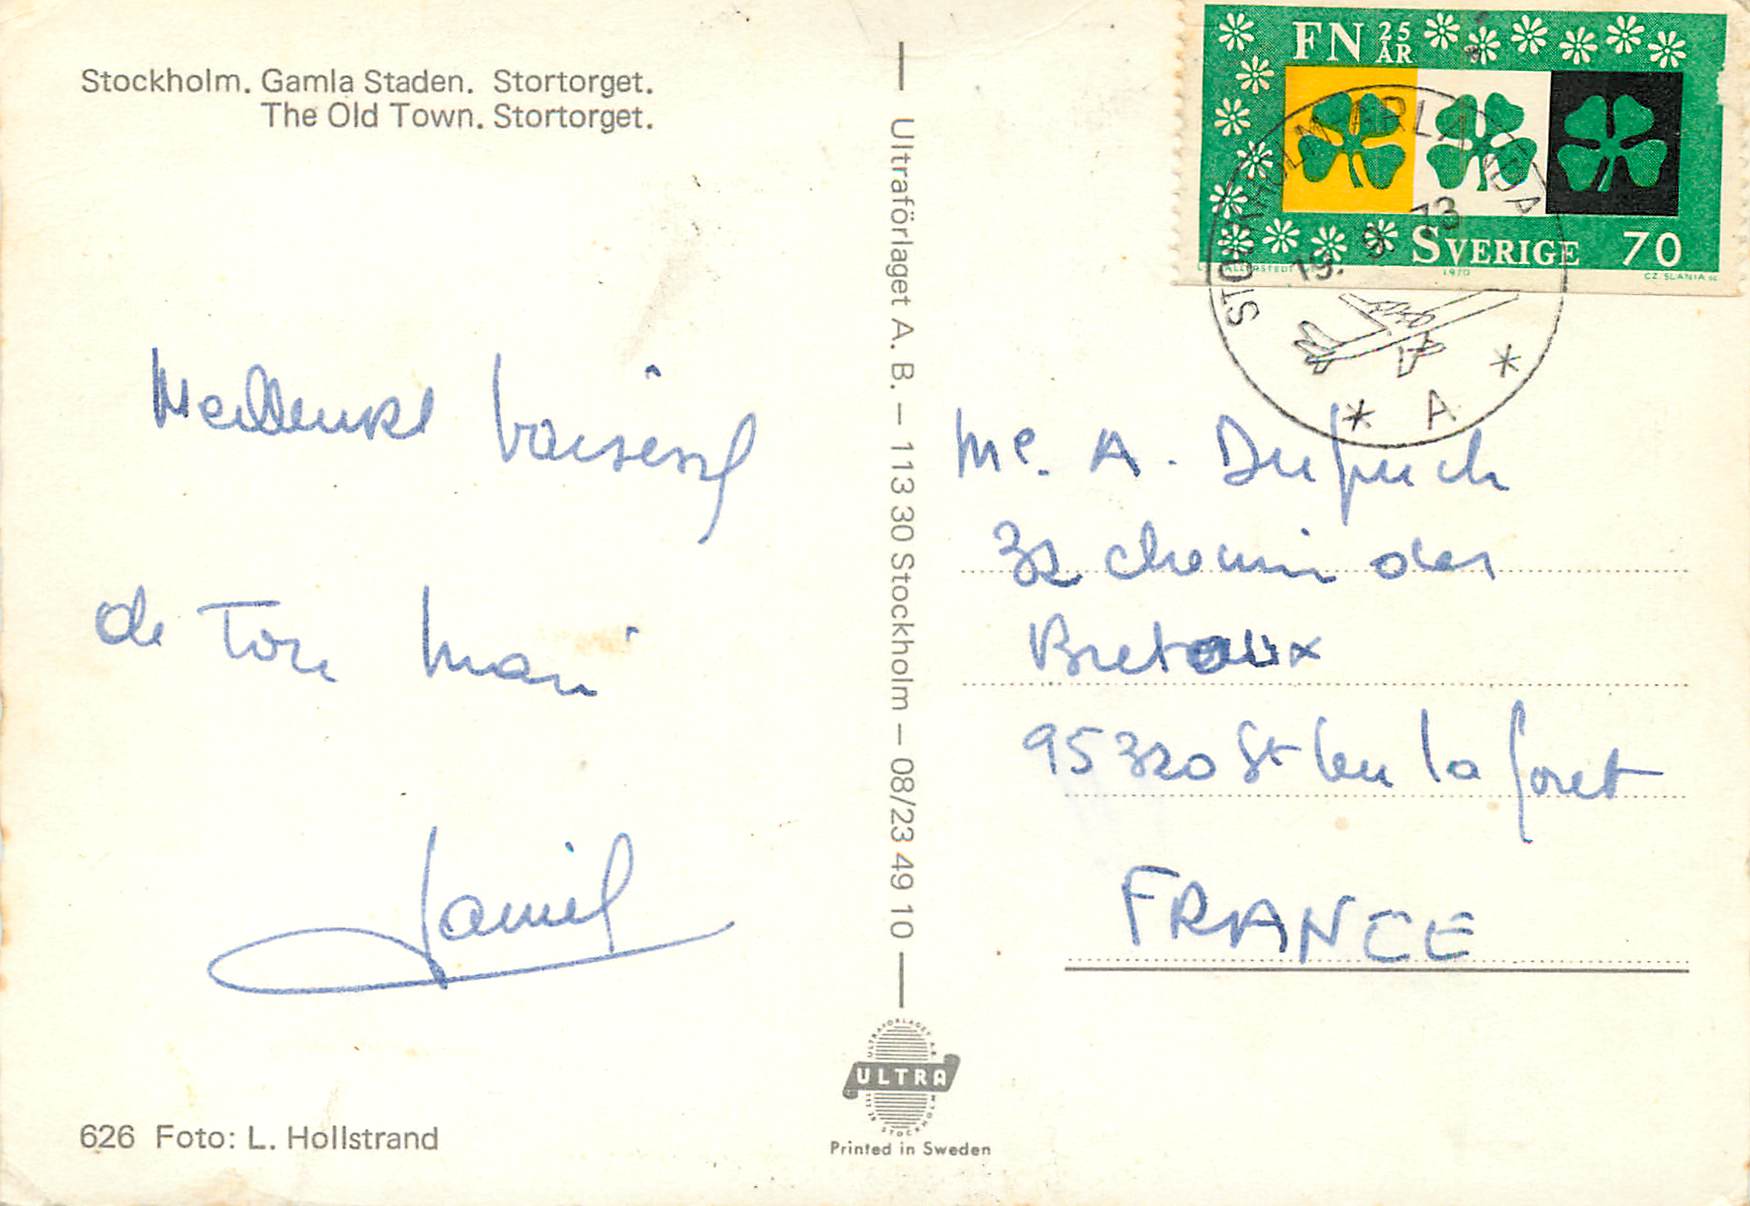 Stockholm. Gamla Staden. Stortorget.
The Old Town. Stortorget.
FN 25 ÅR
SVERIGE 70
1970
CZ. SLANIA sc
STOCKHOLM ARLANDA
19. 9. 73
* A *
de ton mari
Me. A. Dupuch
32 chemin des
Bretoux
95320 St Leu la foret
FRANCE
Ultraförlaget A. B. — 113 30 Stockholm — 08/23 49 10
ULTRA
Printed in Sweden
626 Foto: L. Hollstrand